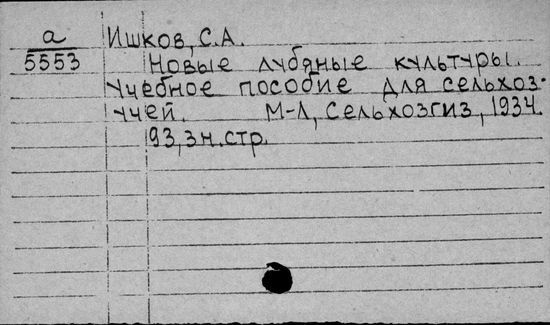 а
5553
Ишков, С.А.
Новые лубяные культуры.
Учебное пособие для сельхоз-
учей. М-Л, Сельхозгиз, 1934.
93, 3н. стр.